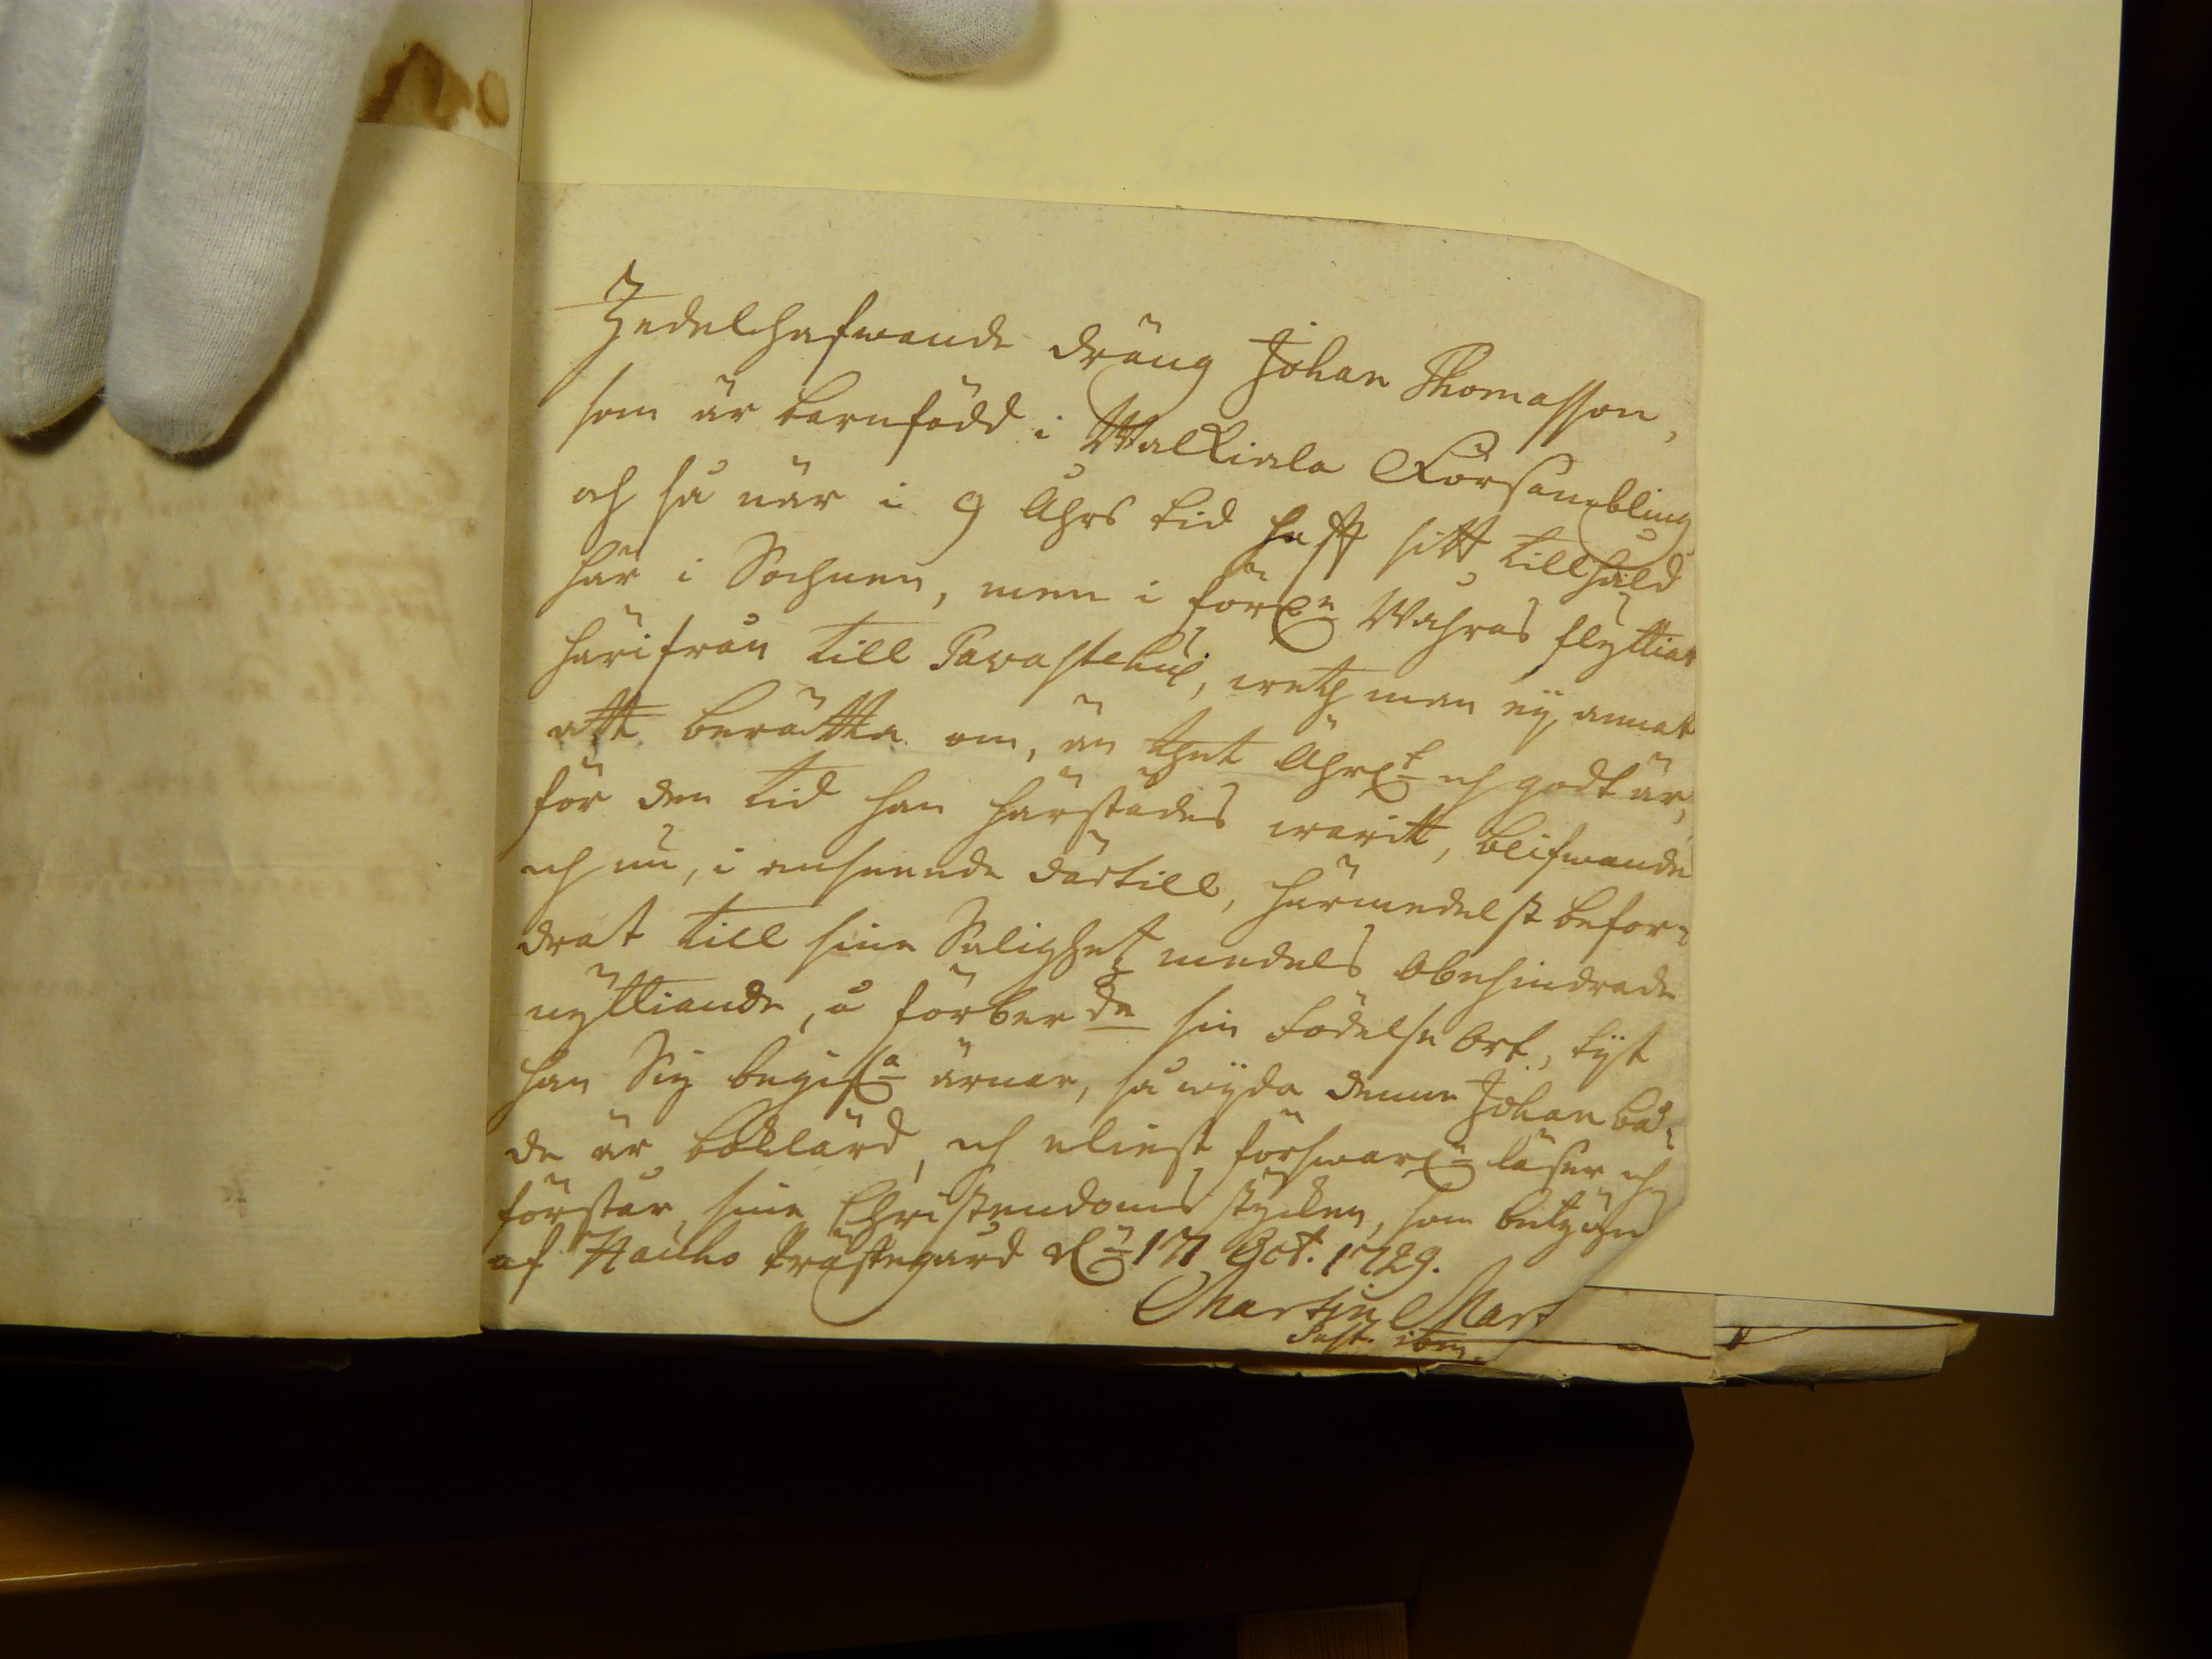 Zedelhafwande dräng Johan Thomasson,
som är barnfödd i Walkiala Försambling
och så när i 9 åhrs tid hafft sitt tillhåld
här i Sochnen, men i förln Wåhras flyttiat
härifrån till Tavastehus, weth man eij annat
att berätta om, än thet ährlt och godt är,
för den tid han härstädes warit, blifwande
och nu, i anseende därtill, härmedelst befor-
drat till sine Salighetz medels obehindrade
nyttiande, å förberde sin Födelse Ort, tijt
han Sig begifa ärnar, så wijda denne Johan bå-
de är boklärd, och eliest förswarln läser och
förstår sine Christendoms stycken, som betygar
af Hauho Prästegård dn 17 Oct. 1729.
Martin Mart
Past. ibm.